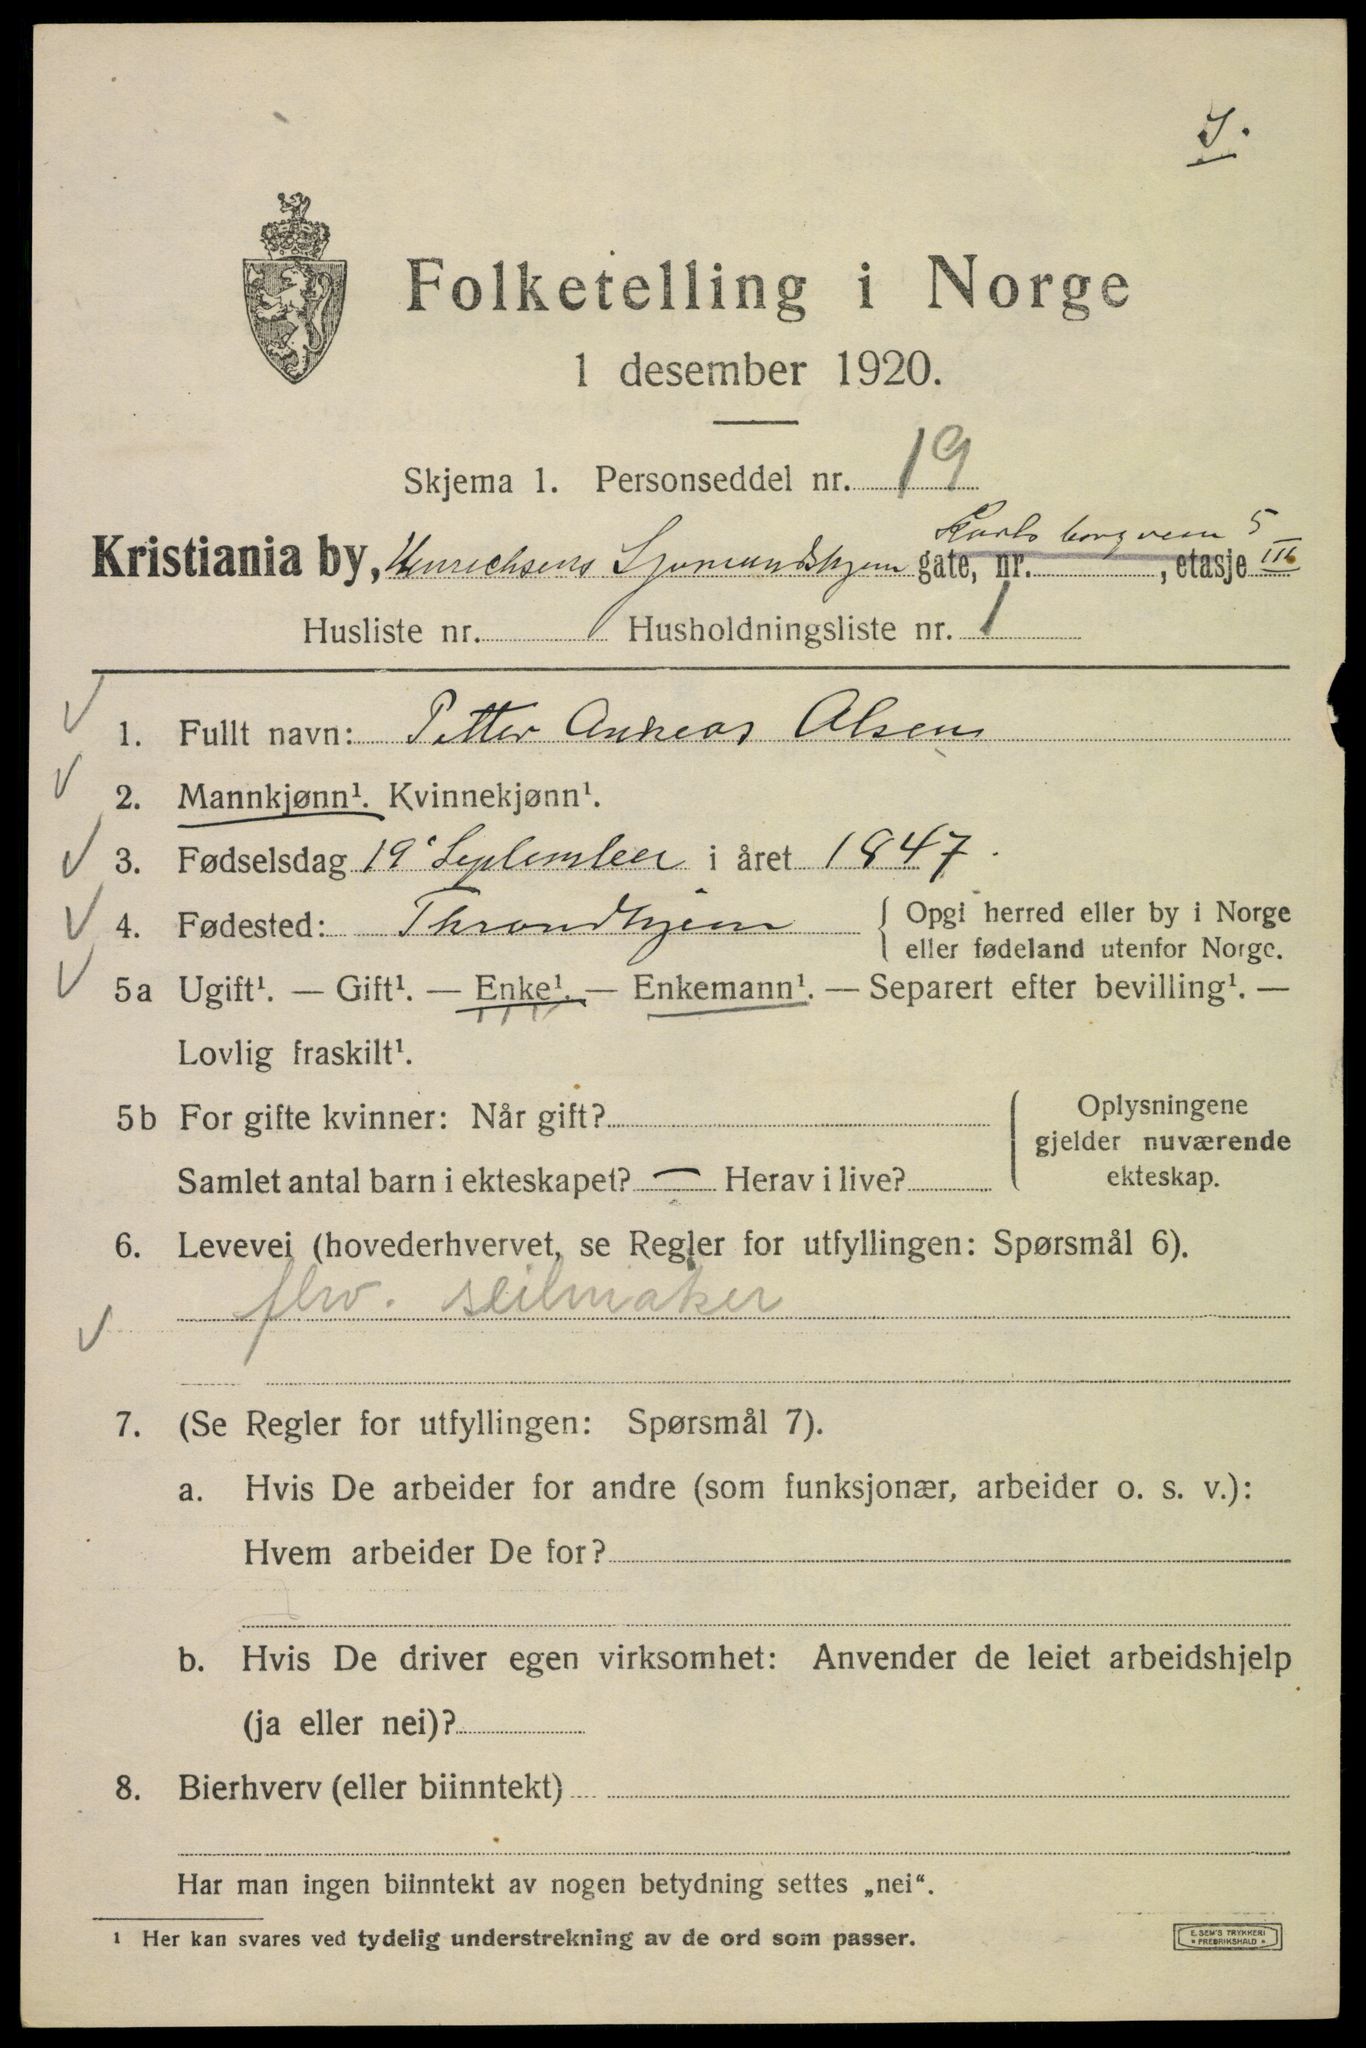 Folketelling i Norge
1 desember 1920.
Skjema 1. Personseddel nr. 19
Karls borgveien 5
Kristiania by, Henrichsens Sjømandshjem gate, nr. , etasje III
Husliste nr. Husholdningsliste nr. 1
1. Fullt navn: Petter Andreas Olsen
2. Mannkjønn¹. Kvinnekjønn¹.
3. Fødselsdag 19' September i året 1847.
4. Fødested: Throndhjem { Opgi herred eller by i Norge
eller fødeland utenfor Norge.
5a Ugift¹. — Gift¹. — Enke¹. — Enkemann¹. — Separert efter bevilling¹. —
Lovlig fraskilt¹.
5b For gifte kvinner: Når gift? { Oplysningene
gjelder nuværende
Samlet antal barn i ekteskapet? — Herav i live? ekteskap.
6. Levevei (hovederhvervet, se Regler for utfyllingen: Spørsmål 6).
fhv. seilmaker
7. (Se Regler for utfyllingen: Spørsmål 7).
a. Hvis De arbeider for andre (som funksjonær, arbeider o. s. v.):
Hvem arbeider De for?
b. Hvis De driver egen virksomhet: Anvender de leiet arbeidshjelp
(ja eller nei)?
8. Bierhverv (eller biinntekt)
Har man ingen biinntekt av nogen betydning settes „nei“.
¹ Her kan svares ved tydelig understrekning av de ord som passer.
E. SEM'S TRYKKERI
* FREDRIKSHALD *